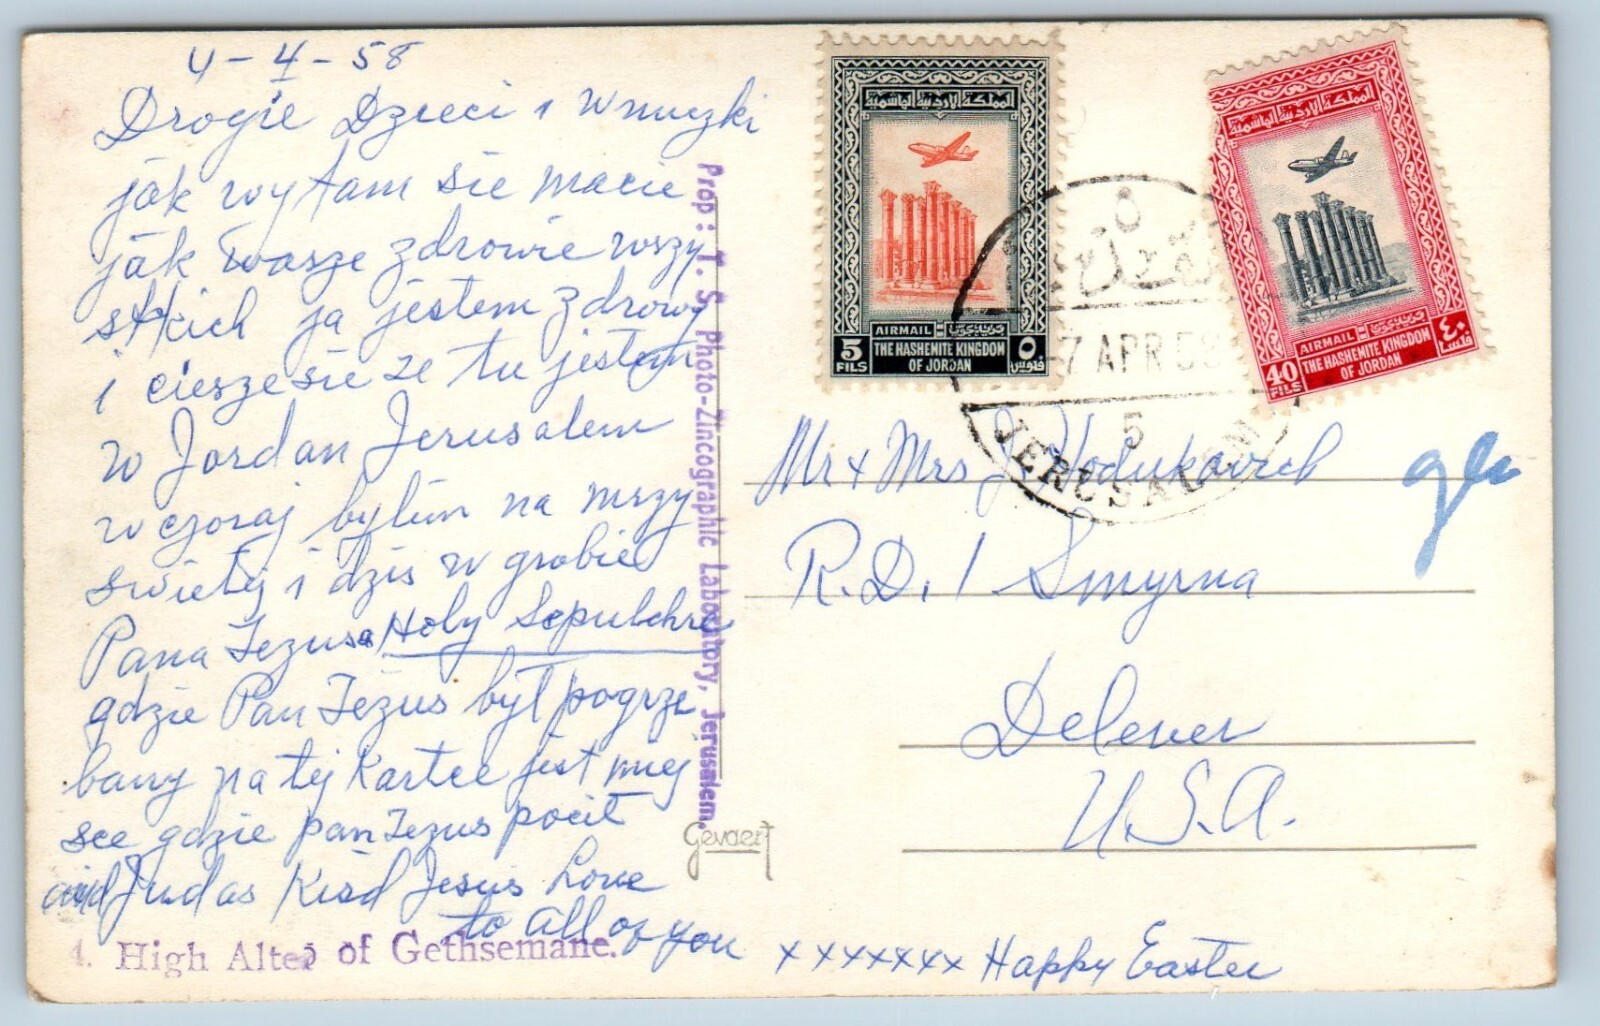 4-4-58
Drogie Dzieci i wnuczki
jak wy tam sie macie
jak wasze zdrowie wszy
stkich ja jestem zdrowy
i ciesze sie ze tu jestem
w Jordan Jerusalem
wczoraj bylim na mszy
swietej i dzis w grobie
Pana Jezusa Holy Sepulchre
gdzie Pan Jezus był pogrze
bany na tej kartce jest miej
sce gdzie pan Jezus pocił
and Judas Kisd Jesus Love
to all of you xxxxxxx Happy Easter
4. High Alter of Gethsemane.
Prop: T. S. Photo-Zincographic Laboratory, Jerusalem.
Gevaert
المملكة الاردنية الهاشمية
AIRMAIL بريد جوي
5 FILS THE HASHEMITE KINGDOM OF JORDAN ٥ فلوس
المملكة الاردنية الهاشمية
AIRMAIL بريد جوي
40 FILS THE HASHEMITE KINGDOM OF JORDAN ٤٠ فلسا
٥
-7 APR 58
5
JERUSALEM
Mr & Mrs J. Hodukavich
R.D. 1 Smyrna
Delever
U.S.A.